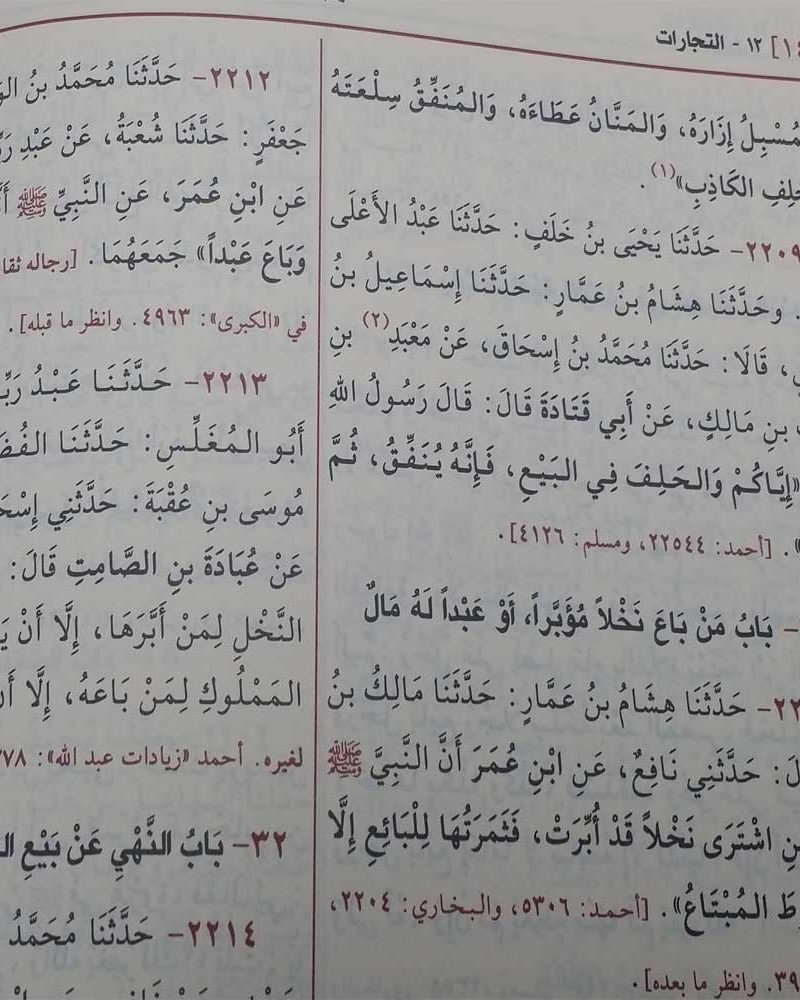 ١٢ - التجارات
إِزَارَهُ، وَالمَنَّانُ عَطَاءَهُ، وَالمُنَفِّقُ سِلْعَتَهُ
الكَاذِبِ»(١).
٢٢٠٩- حَدَّثَنَا يَحْيَى بنُ خَلَفٍ: حَدَّثَنَا عَبْدُ الأَعْلَى
. وحَدَّثَنَا هِشَامُ بنُ عَمَّارٍ: حَدَّثَنَا إِسْمَاعِيلُ بنُ
، قَالَا: حَدَّثَنَا مُحَمَّدُ بنُ إِسْحَاقَ، عَنْ مَعْبَدِ(٢) بنِ
بنِ مَالِكٍ، عَنْ أَبِي قَتَادَةَ قَالَ: قَالَ رَسُولُ اللهِ
«إِيَّاكُمْ وَالحَلِفَ فِي البَيْعِ، فَإِنَّهُ يُنَفِّقُ، ثُمَّ
». [أحمد: ٢٢٥٤٤، ومسلم: ٤١٢٦].
- بَابُ مَنْ بَاعَ نَخْلاً مُؤَبَّراً، أَوْ عَبْداً لَهُ مَالٌ
- حَدَّثَنَا هِشَامُ بنُ عَمَّارٍ: حَدَّثَنَا مَالِكُ بنُ
: حَدَّثَنِي نَافِعٌ، عَنِ ابْنِ عُمَرَ أَنَّ النَّبِيَّ ﷺ
اشْتَرَى نَخْلاً قَدْ أُبِّرَتْ، فَثَمَرَتُهَا لِلْبَائِعِ إِلَّا
المُبْتَاعُ». [أحمد: ٥٣٠٦، والبخاري: ٢٢٠٤،
. وانظر ما بعده].
٢٢١٢- حَدَّثَنَا مُحَمَّدُ بنُ
جَعْفَرٍ: حَدَّثَنَا شُعْبَةُ، عَنْ عَبْدِ
عَنِ ابْنِ عُمَرَ، عَنِ النَّبِيِّ ﷺ
وَبَاعَ عَبْداً» جَمَعَهُمَا. [رجاله
في «الكبرى»: ٤٩٦٣. وانظر ما قبله].
٢٢١٣- حَدَّثَنَا عَبْدُ
أَبُو المُغَلِّسِ: حَدَّثَنَا
مُوسَى بنِ عُقْبَةَ: حَدَّثَنِي
عَنْ عُبَادَةَ بنِ الصَّامِتِ قَالَ:
النَّخْلِ لِمَنْ أَبَّرَهَا، إِلَّا أَنْ
المَمْلُوكِ لِمَنْ بَاعَهُ، إِلَّا
لغيره. أحمد «زيادات عبد الله»:
٣٢- بَابُ النَّهْيِ عَنْ بَيْعِ
٢٢١٤- حَدَّثَنَا مُحَمَّدُ